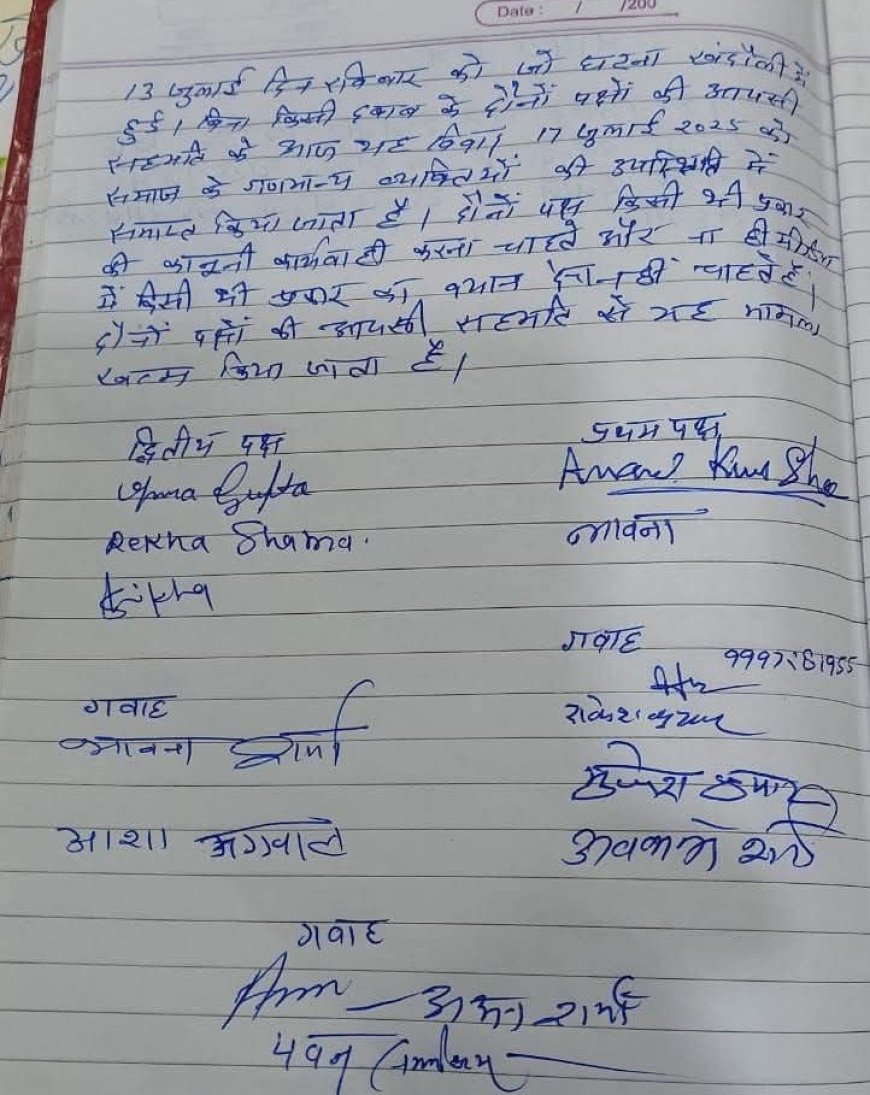 Date : / /200
13 जुलाई दिन रविवार को जो घटना खंदौली में
हुई। बिना किसी दबाव के दोनों पक्षों की आपसी
सहमति के आज यह दिवा। 17 जुलाई 2025 को
समाज के गणमान्य व्यक्तियों की उपस्थिति में
समाप्त किया जाता है। दोनों पक्ष किसी भी प्रकार
की कानूनी कार्यवाही करना चाहते और ना ही मीडिया
में किसी भी प्रकार का बयान देना नहीं चाहते हैं।
दोनों पक्षों की आपसी सहमति से यह मामला
खत्म किया जाता है।
द्वितीय पक्ष
प्रथम पक्ष
Gupta
Anand
Rekha Sharma.
भावना
गवाह
गवाह
भावना शर्मा
राकेश कुमार
कुमार
आशा अग्रवाल
गवाह
शर्मा
पवन